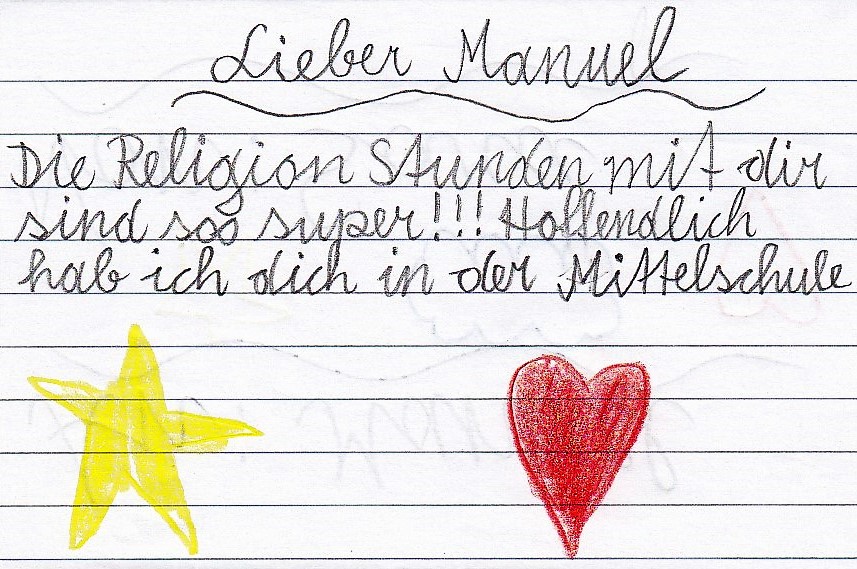 Lieber Manuel
Die Religion Stunden mit dir
sind soo super!!! Hoffendlich
hab ich dich in der Mittelschule